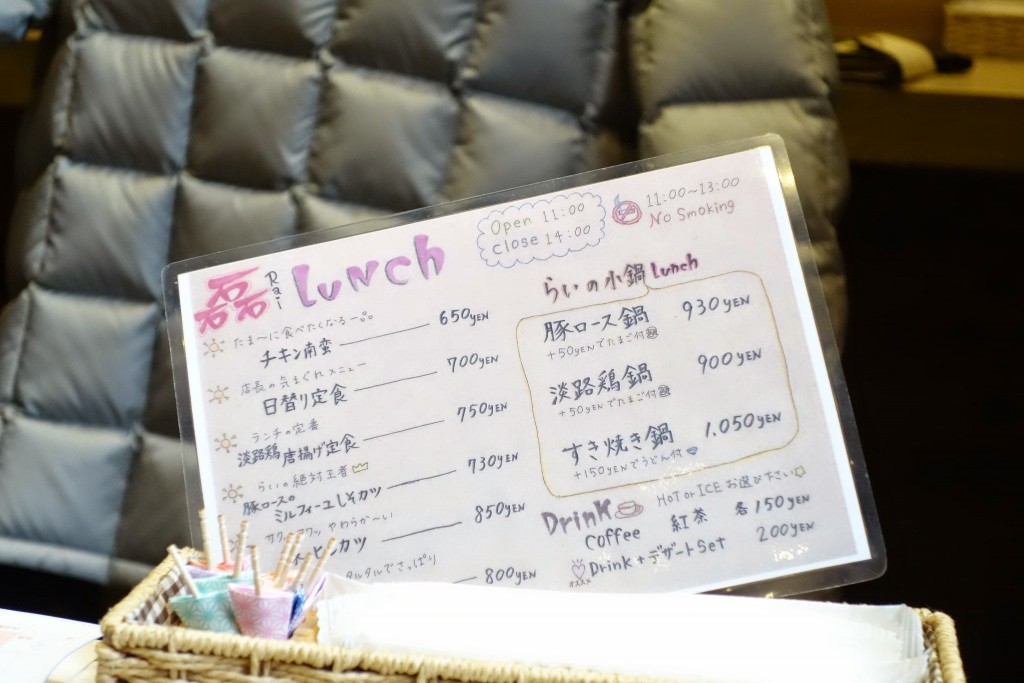 磊
Rai
Lunch
Open 11:00
Close 14:00
11:00~13:00
No Smoking
たま〜に食べたくなる一品。
チキン南蛮 650YEN
店長の気まぐれメニュー
日替り定食 700YEN
ランチの定番
淡路鶏唐揚げ定食 750YEN
らいの絶対王者
豚ロースの
ミルフィーユしそカツ 730YEN
やわらか〜い
カツ 850YEN
タルタルでさっぱり
800YEN
らいの小鍋Lunch
豚ロース鍋 930YEN
+50YENでたまご付
淡路鶏鍋 900YEN
+50YENでたまご付
すき焼き鍋 1,050YEN
+150YENでうどん付
Drink HOT or ICE お選び下さい
Coffee 紅茶 各150YEN
オススメ Drink+デザートSet 200YEN